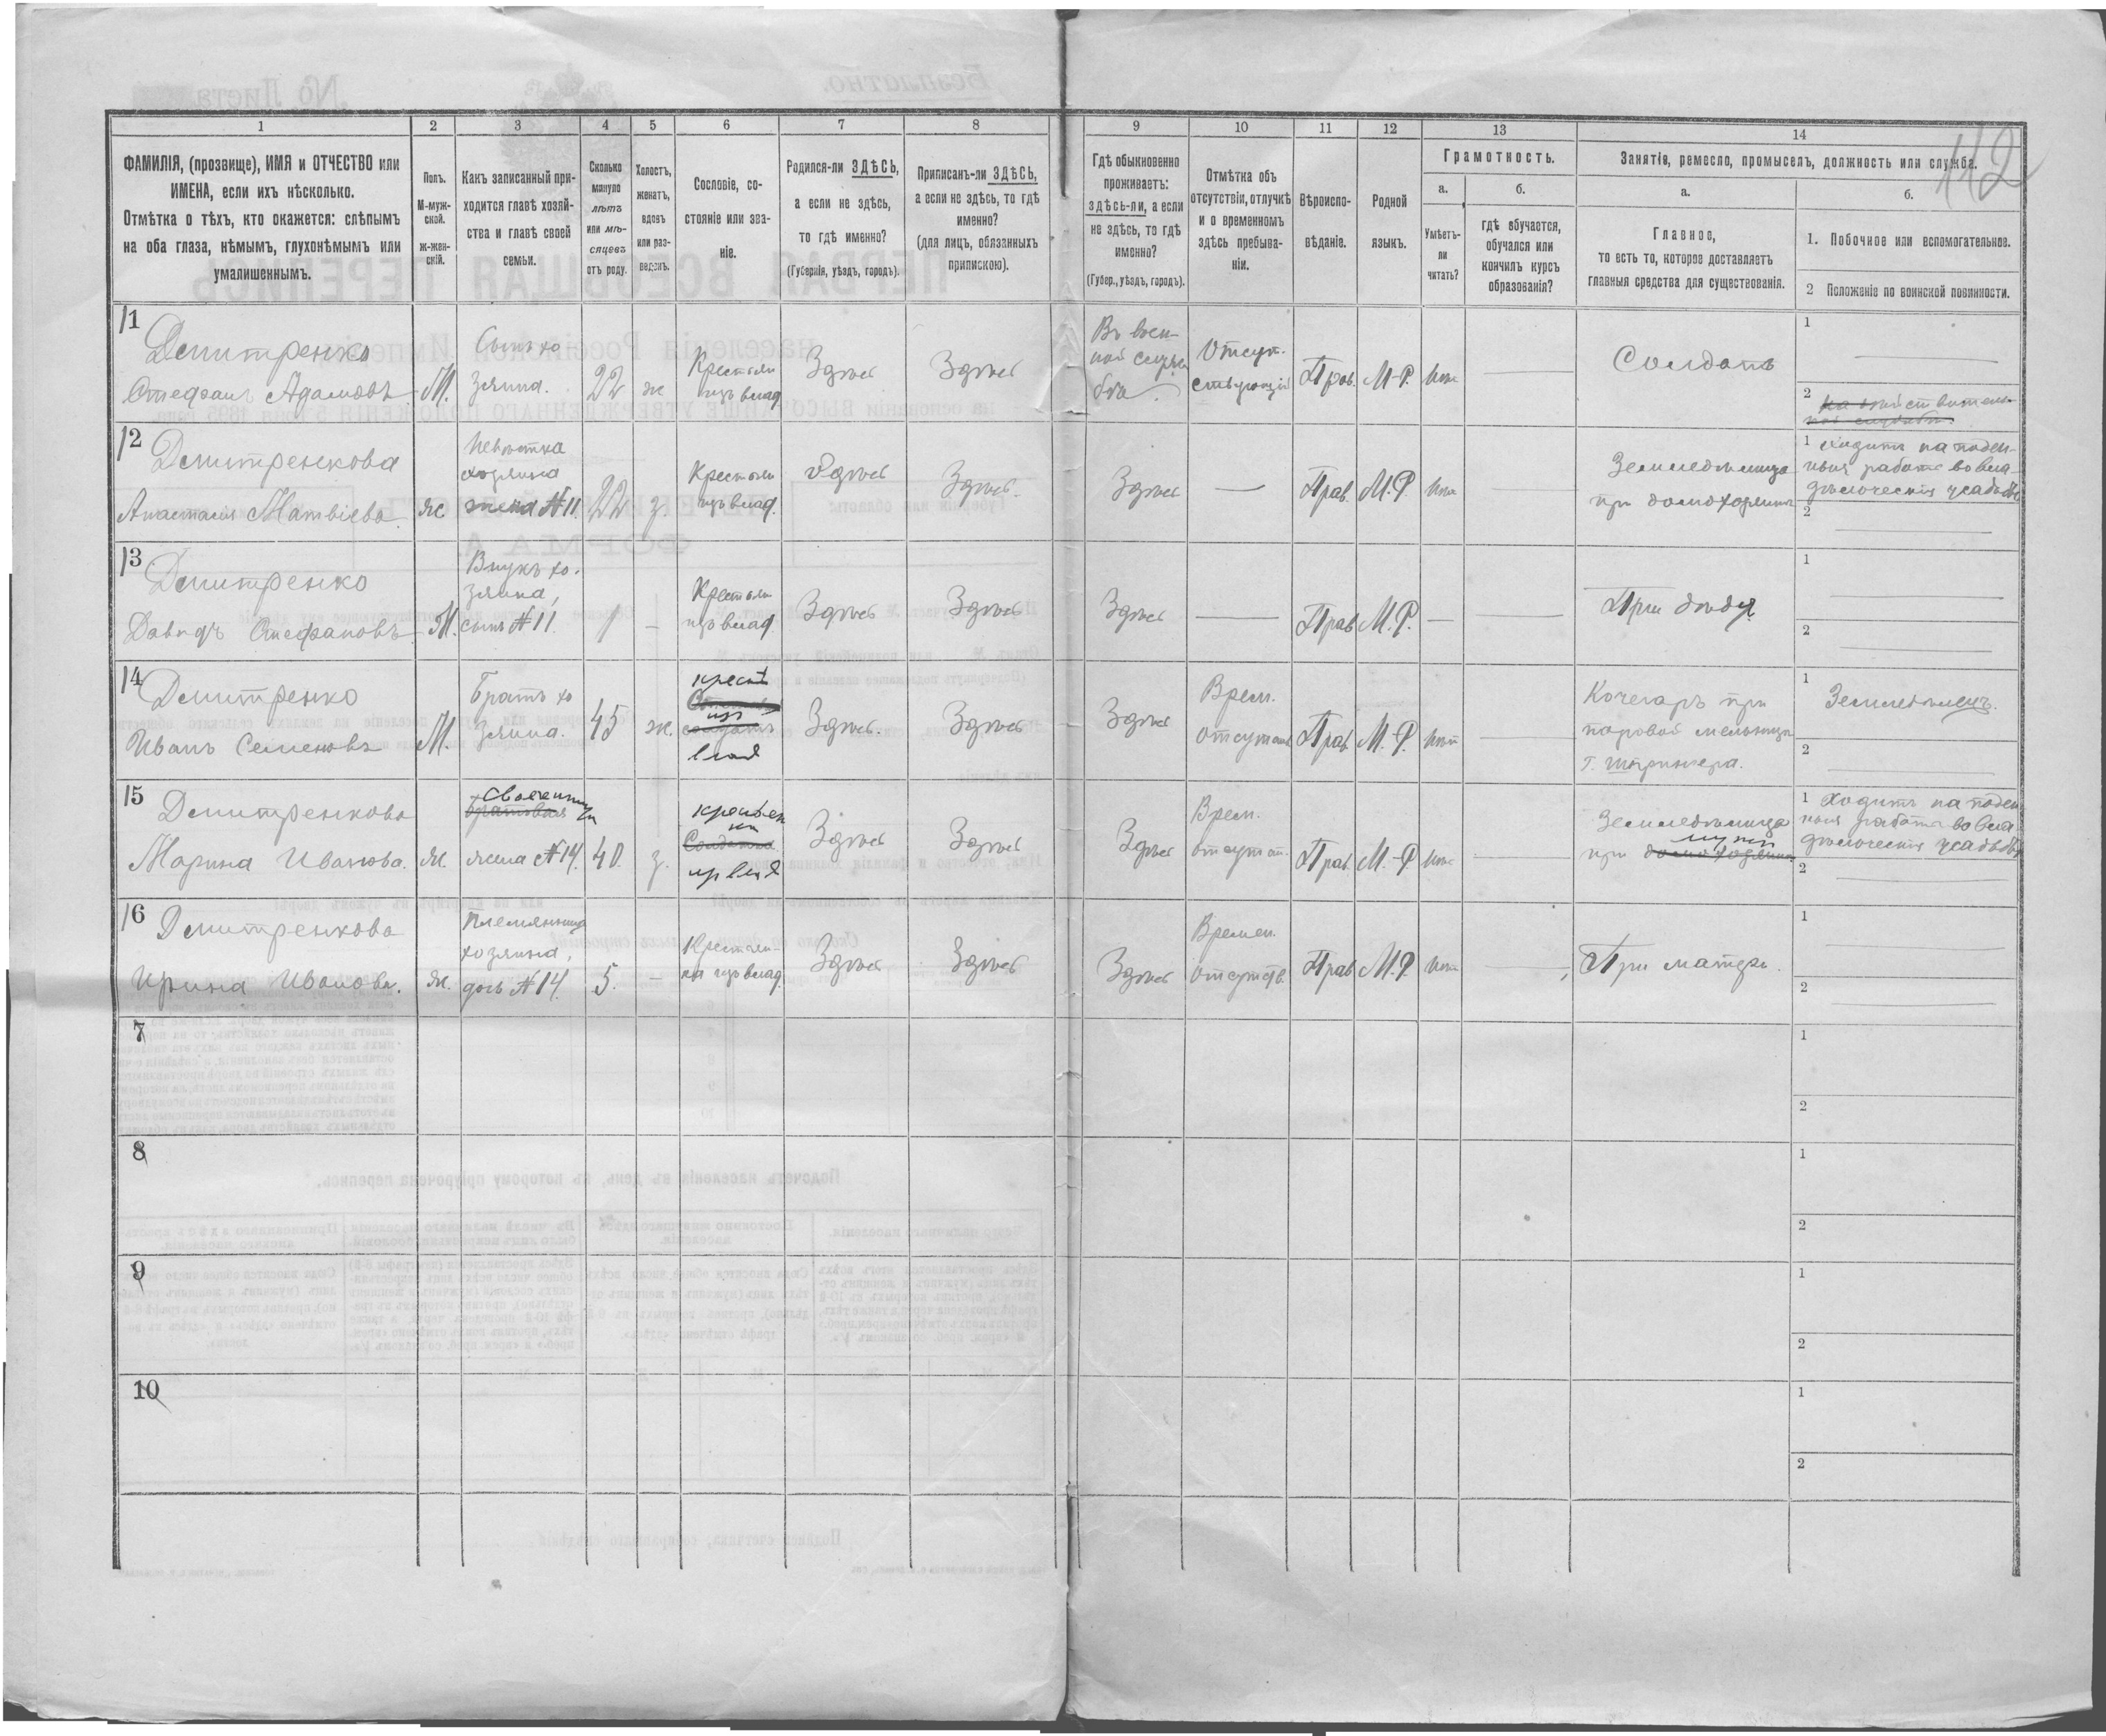 112
1 2 3 4 5 6 7 8 9 10 11 12 13 14
ФАМИЛІЯ, (прозвище), ИМЯ и ОТЧЕСТВО или
ИМЕНА, если ихъ нѣсколько.
Отмѣтка о тѣхъ, кто окажется: слѣпымъ
на оба глаза, нѣмымъ, глухонѣмымъ или
умалишеннымъ.
Полъ.
М-муж-
ской.
ж-жен-
скій.
Какъ записанный при-
ходится главѣ хозяй-
ства и главѣ своей
семьи.
Сколько
минуло
лѣтъ
или мѣ-
сяцевъ
отъ роду.
Холостъ,
женатъ,
вдовъ
или раз-
веденъ.
Сословіе, со-
стояніе или зва-
ніе.
Родился-ли ЗДѢСЬ,
а если не здѣсь,
то гдѣ именно?
(Губернія, уѣздъ, городъ).
Приписанъ-ли ЗДѢСЬ,
а если не здѣсь, то гдѣ
именно?
(для лицъ, обязанныхъ
припискою).
Гдѣ обыкновенно
проживаетъ:
здѣсь-ли, а если
не здѣсь, то гдѣ
именно?
(Губер., уѣздъ, городъ).
Отмѣтка объ
отсутствіи, отлучкѣ
и о временномъ
здѣсь пребыва-
ніи.
Вѣроиспо-
вѣданіе.
Родной
языкъ.
Грамотность.
а.
Умѣетъ-
ли
читать?
б.
гдѣ обучается,
обучался или
кончилъ курсъ
образованія?
Занятіе, ремесло, промыселъ, должность или служба.
а.
Главное,
то есть то, которое доставляетъ
главныя средства для существованія.
б.
1. Побочное или вспомогательное.
2 Положеніе по воинской повинности.
11
Дмитренко
Стефанъ Адамовъ
М.
Сынъ хо
зяина.
22
ж
Крестьян
изъ влад
Здѣсь
Здѣсь
Въ воен-
ной служ
бѣ.
Отсут-
ствующій
Прав.
М-Р.
Солдатъ
1
2
12
Дмитренкова
Анастасія Матвіева
ж
Невѣстка
хозяина
жена №11.
22
з.
Крестьян
изъ влад.
Здѣсь
Здѣсь.
Здѣсь
Прав.
М.Р.
Земледѣлица
при домохозяинѣ
1 Ходитъ на поден-
ныя работы во вла-
дѣльческія усадьбы
2
13
Дмитренко
Давидъ Стефановъ
М.
Внукъ хо-
зяина,
сынъ №11
1
Крестьян
изъ влад
Здѣсь
Здѣсь
Здѣсь
Прав
М.Р.
При дѣдѣ
1
2
14
Дмитренко
Иванъ Семеновъ
М.
Братъ хо
зяина.
45
ж.
крест
изъ
влад
Здѣсь.
Здѣсь
Здѣсь
Врем.
отсутств
Прав
М.-Р.
Кочегаръ при
паровой мельницѣ
1
Земледѣлецъ.
2
15
Дмитренкова
Марина Иванова.
ж.
жена №14.
40.
з.
изъ влад
Здѣсь
Здѣсь
Здѣсь
Врем.
отсутст.
Прав.
М.-Р
Земледѣлица
при мужѣ
1 Ходитъ на поден
ныя работы во вла
дѣльческія усадьбы
2
16
Дмитренкова
Ирина Иванова.
ж.
Племянница
хозяина,
дочь №14.
5.
Крестьян-
ка изъ влад.
Здѣсь
Здѣсь
Здѣсь
Времен.
отсутств.
Прав
М.Р.
При матери.
1
2
7
1
2
8
1
2
9
1
2
10
1
2